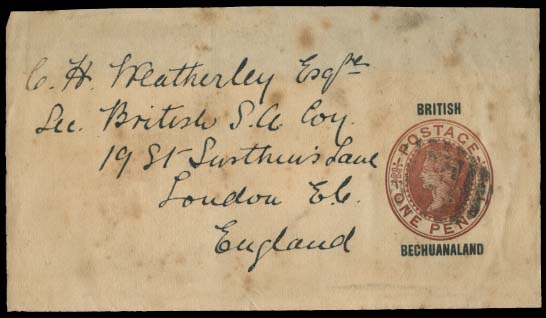 C. H. Weatherley Esqre
Sec. British S.A. Coy.
19 St Swithin's Lane
London E.C.
England
BRITISH
POSTAGE
ONE PENNY
BECHUANALAND